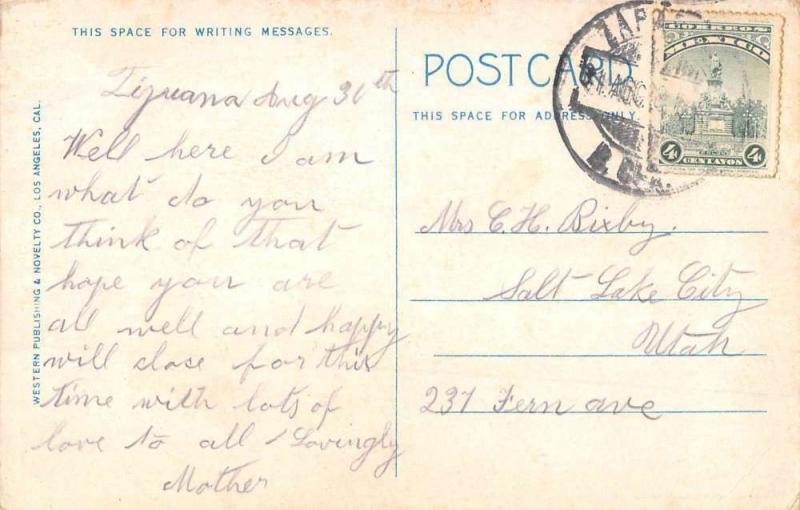 THIS SPACE FOR WRITING MESSAGES.
Tijuana Aug 30th
Well here I am
what do you
think of that
hope you are
all well and happy
will close for this
time with lots of
love to all Lovingly
Mother
WESTERN PUBLISHING & NOVELTY CO., LOS ANGELES, CAL.
POSTCARD
THIS SPACE FOR ADDRESS ONLY.
Mrs C. H. Bixby.
Salt Lake City
Utah
237 Fern ave
CORREOS
MEXICO
4¢ 4¢
CENTAVOS
31 AGO
B. CFA.